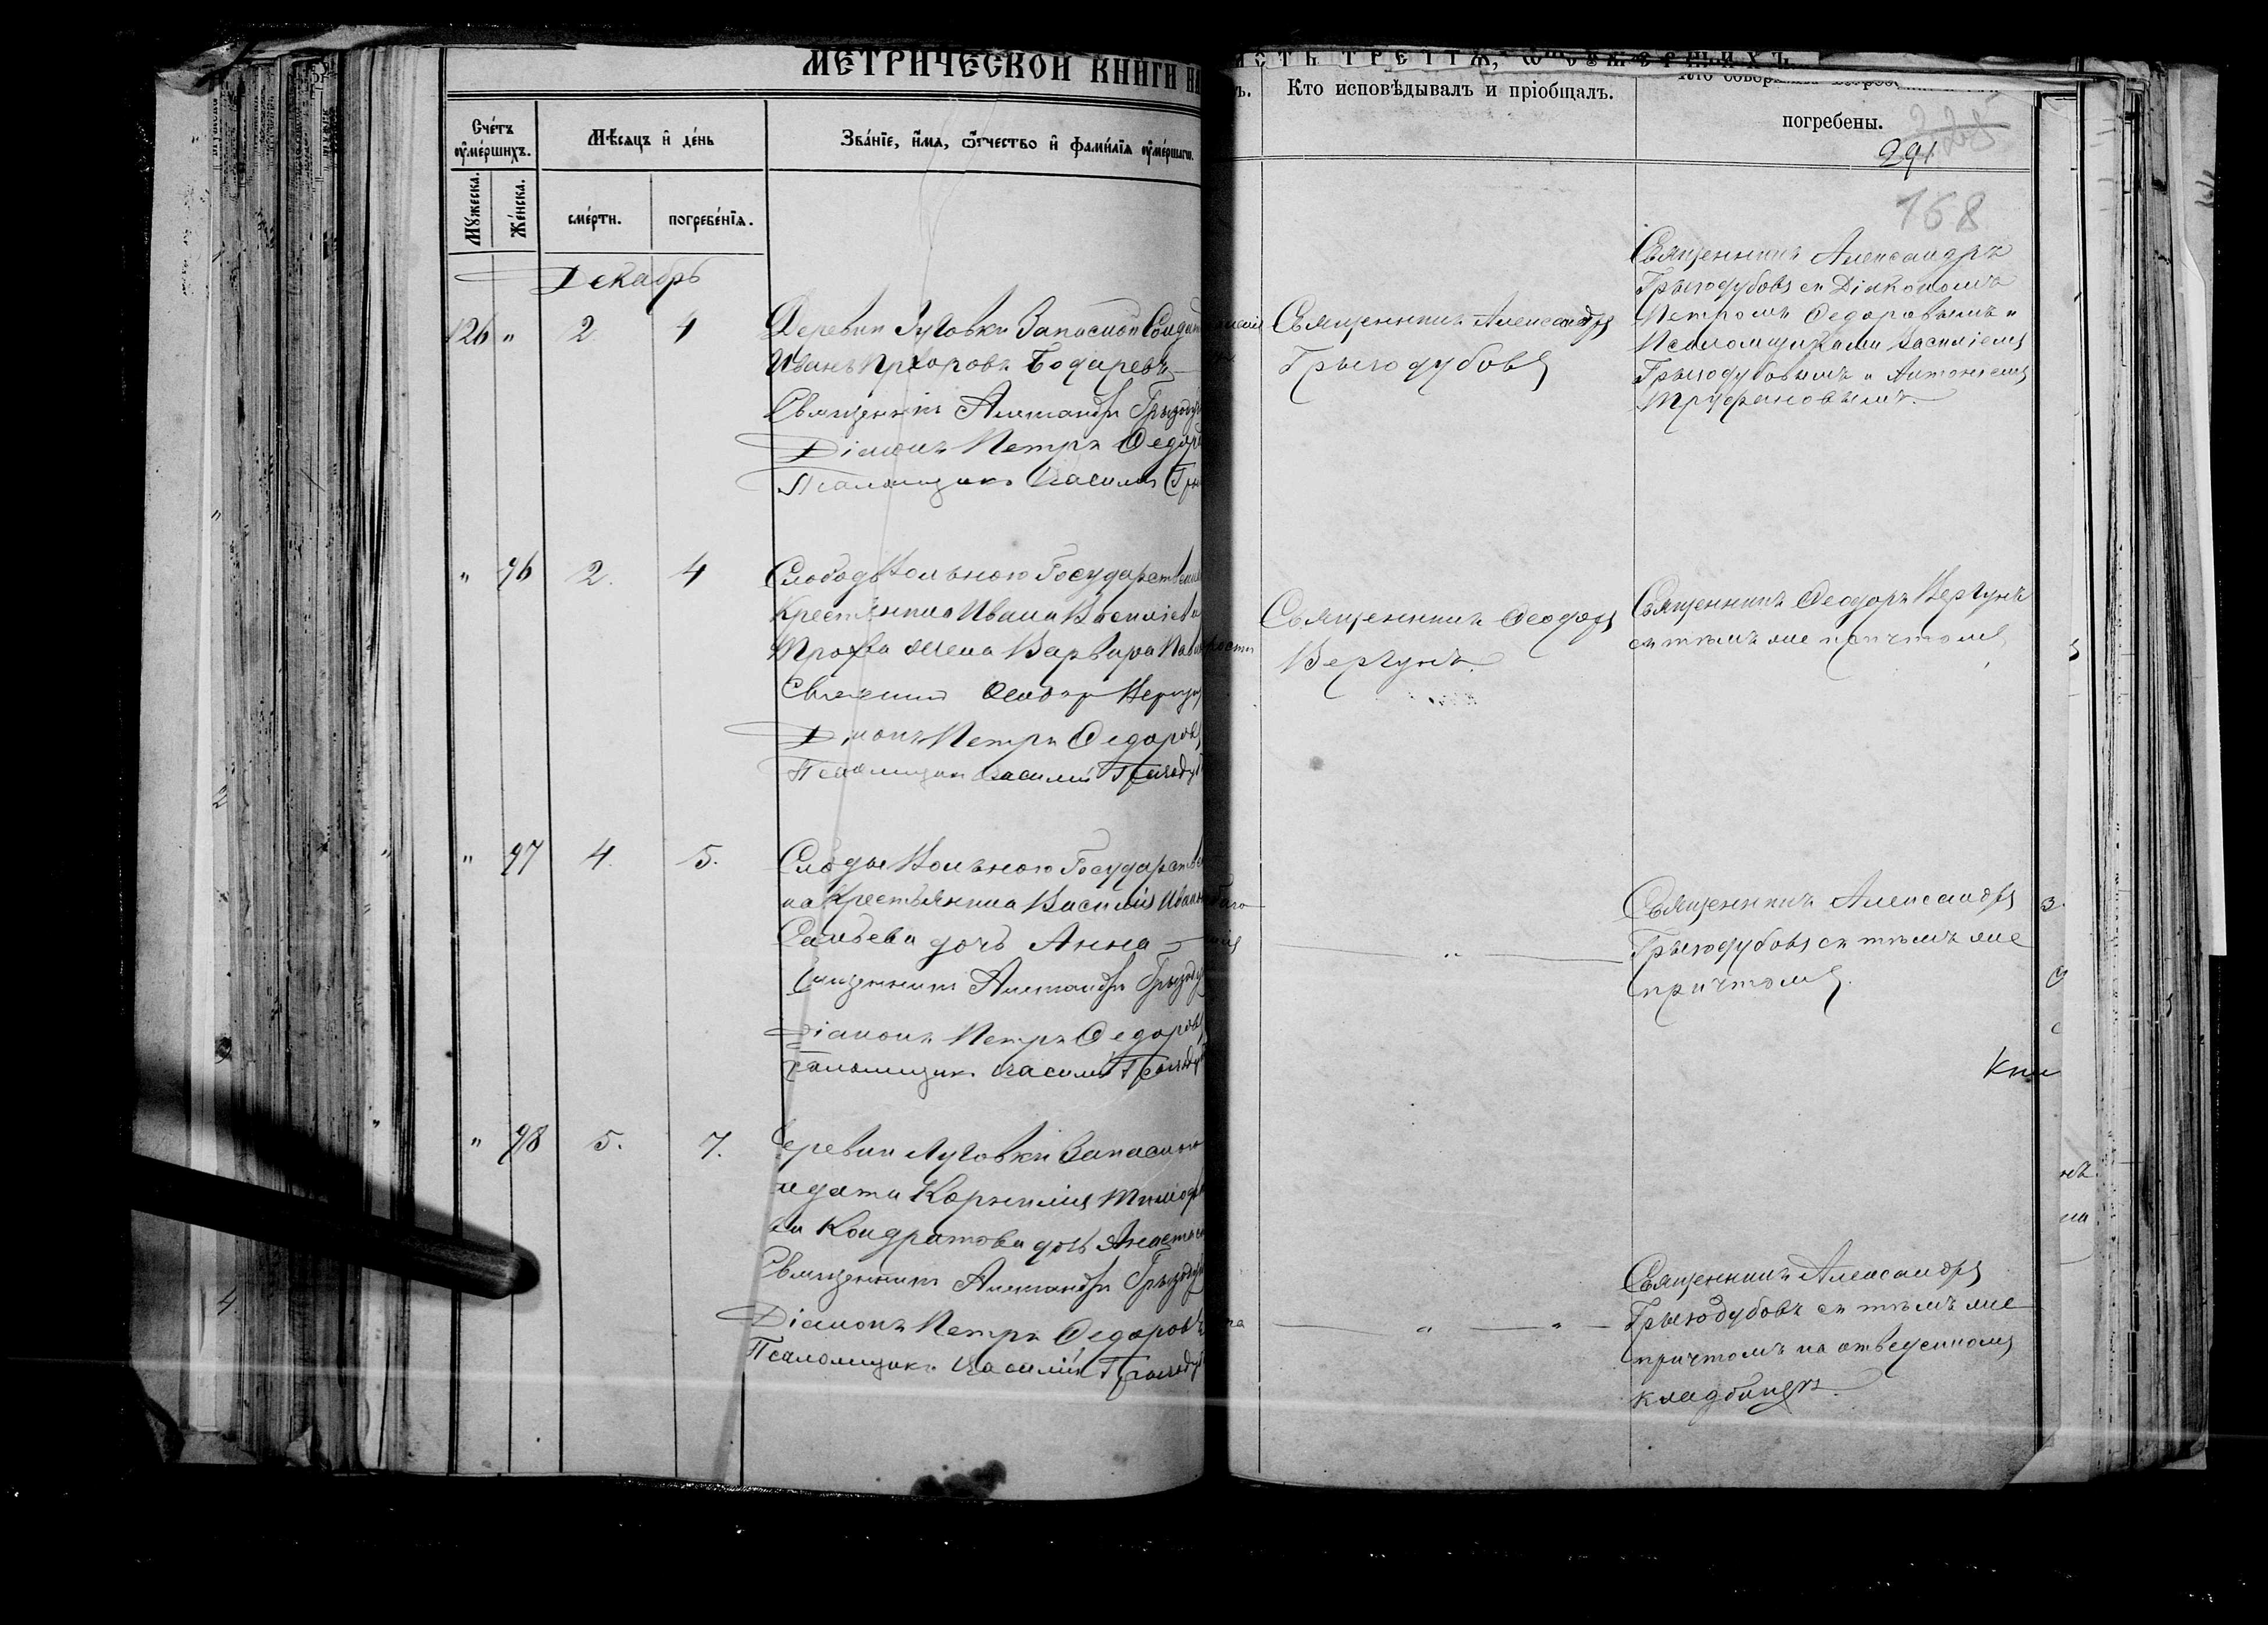 МЕТРИЧЕСКОЙ КНИГИ НА
Сче́тъ ѹ҆ме́ршихъ.
Мѣ́сяцъ и҆ де́нь
Зва́нїе, и҆́мя, ѻ҆́тчество и҆ фами́лїя ѹ҆ме́ршагѡ.
Мꙋ́жеска.
Же́нска.
сме́рти.
погребе́нїя.
Декабрь
126 " 2 4
Деревни Луговки Запасной Солдат
Иванъ Прохоровъ Бодаревъ
Священникъ Александръ Грызоду
Діаконъ Петръ Федоро
Псаломщикъ Василій Гры
" 96 2. 4
Слободы Вольного Государствен
Крестьянина Ивана Василіева
жена Варвара
Священникъ Феодоръ Вергун
Діаконъ Петръ Федоровъ
Псаломщикъ Василій Грызодуб
" 97 4. 5.
Слободы Вольного Государствен
на Крестьянина Василія Иванова
дочь Анна
Священникъ Александръ Грызоду
Діаконъ Петръ Федоровъ
Псаломщикъ Василій Грызодуб
" 98 5. 7.
Деревни Луговки Запасного
Корнилія
Кондратова дочь Анастасія
Священникъ Александръ Грызодуб
Діаконъ Петръ Федоровъ
Псаломщикъ Василій Грызодуб
СТЬ ТРЕТІЯ,
Кто исповѣдывалъ и пріобщалъ.
погребены.
225
291
168
Священникъ Александръ
Грызодубовъ
Священникъ Александръ
Грызодубовъ съ Діакономъ
Петромъ Федоровымъ и
Псаломщиками Василіемъ
Грызодубовымъ и Антоніемъ
Труфановымъ.
Священникъ Феодоръ
Вергунъ.
Священникъ Феодоръ Вергунъ
съ тѣмъ же причтомъ
Священникъ Александръ
Грызодубовъ съ тѣмъ же
причтомъ.
Кни
Священникъ Александръ
Грызодубовъ съ тѣмъ же
причтомъ на отведенномъ
кладбищѣ.